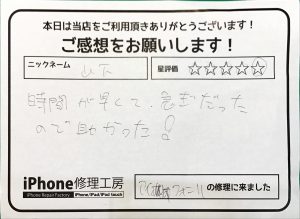 本日は当店をご利用頂きありがとうございます！
ご感想をお願いします！
ニックネーム 山下
星評価 ☆☆☆☆☆
時間が早くて、急ぎだった
ので助かった！
iPhone修理工房
iPhone Repair Factory iPhone/iPad/iPod touch
の修理に来ました